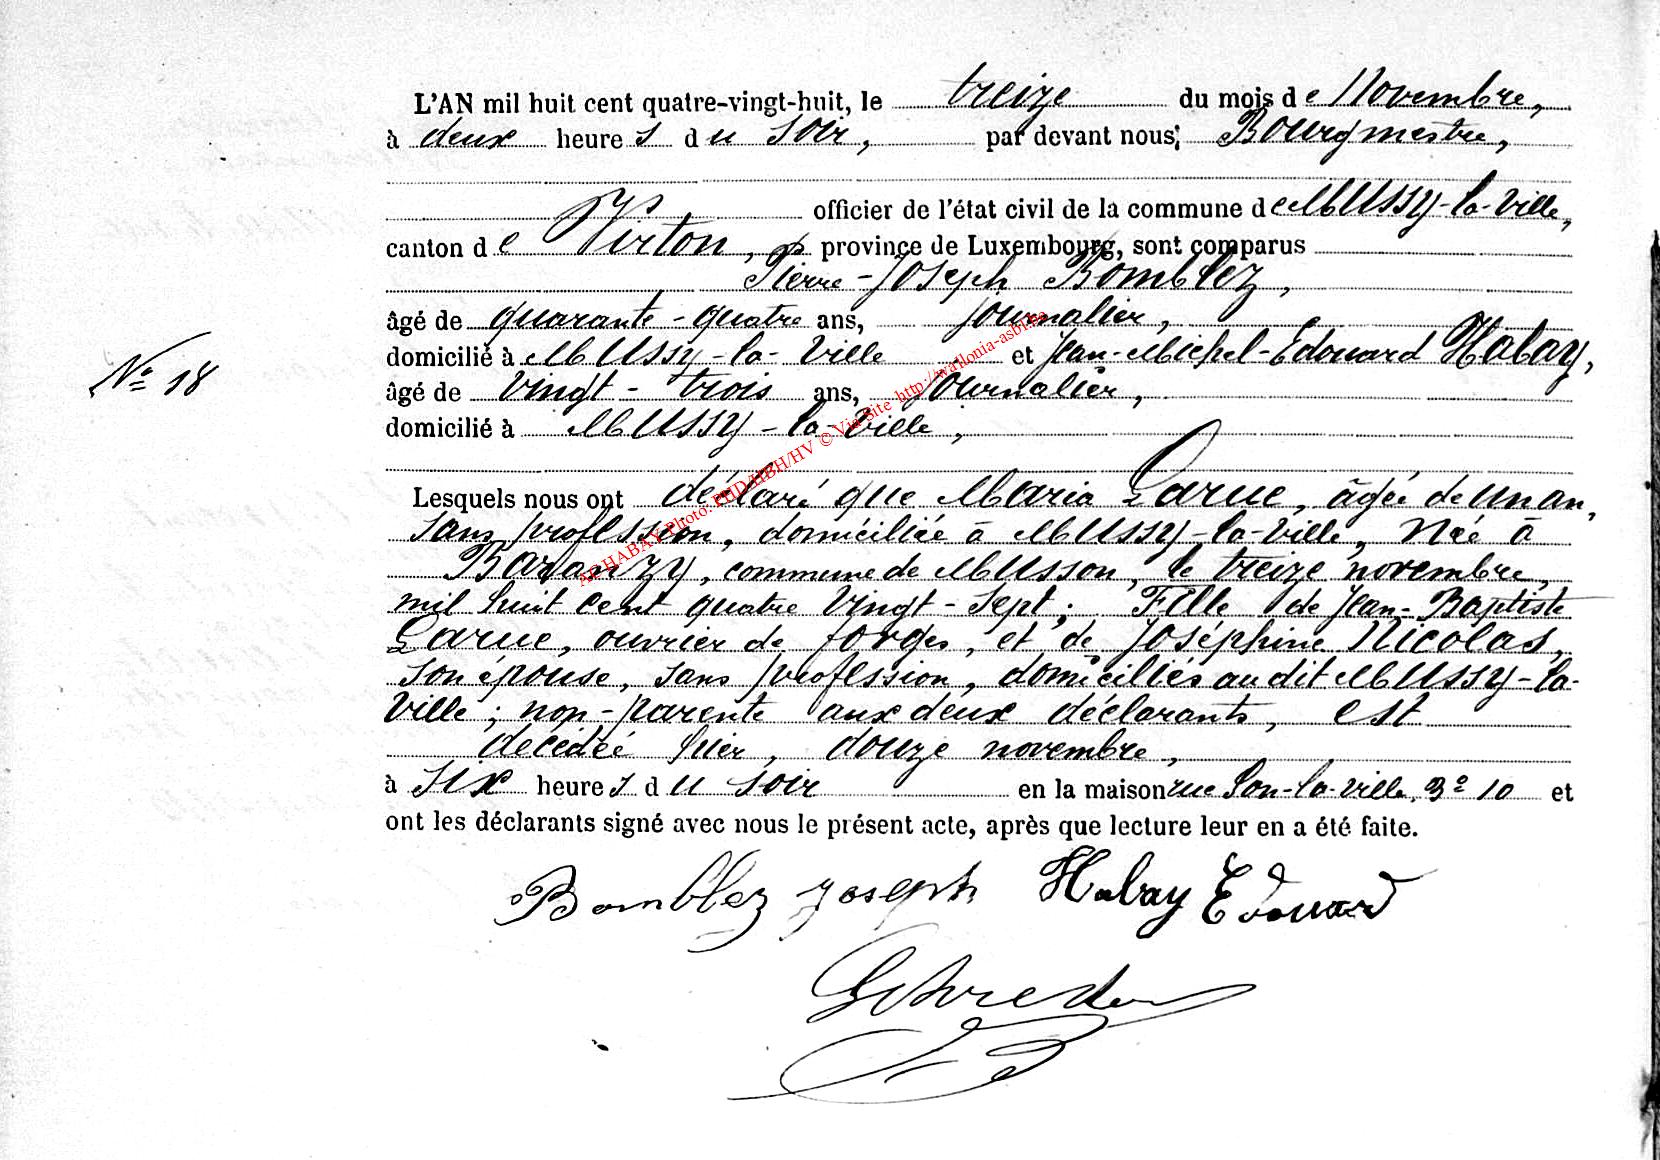 L'AN mil huit cent quatre-vingt-huit, le treize du mois de Novembre,
à deux heures du soir, par devant nous, Bourgmestre,
officier de l'état civil de la commune de Mussy-la-Ville,
canton de Virton, province de Luxembourg, sont comparus
Pierre-Joseph Bomblez,
âgé de quarante-quatre ans, journalier,
domicilié à Mussy-la-Ville et Jean-Michel-Edouard Habay,
N° 18
âgé de vingt-trois ans, journalier,
domicilié à Mussy-la-Ville,
Lesquels nous ont déclaré que Maria Larue, âgée de un an,
sans profession, domiciliée à Mussy-la-Ville, née à
Baranzy, commune de Musson, le treize novembre,
mil huit cent quatre vingt-sept; Fille de Jean-Baptiste
Larue, ouvrier de forges, et de Joséphine Nicolas,
son épouse, sans profession, domiciliés audit Mussy-la-
Ville; non-parente aux deux déclarants, est
décédée hier, douze novembre,
à six heures du soir en la maison rue Son-la-ville, 10 et
ont les déclarants signé avec nous le présent acte, après que lecture leur en a été faite.
Bomblez Joseph Habay Edouard
AC HABAY Photo: © Via Site http://wallonia-asbl.be